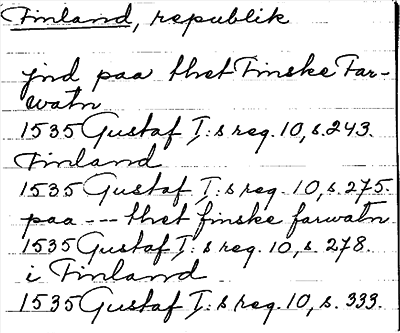 Finland, republik
jnd paa thet Finske Far-
watn
1535 Gustaf I:s reg. 10, s. 243.
Finland
1535 Gustaf I:s reg. 10, s. 275.
paa --- thet finske farwatn
1535 Gustaf I:s reg. 10, s. 278.
i Finland
1535 Gustaf I:s reg. 10, s. 333.